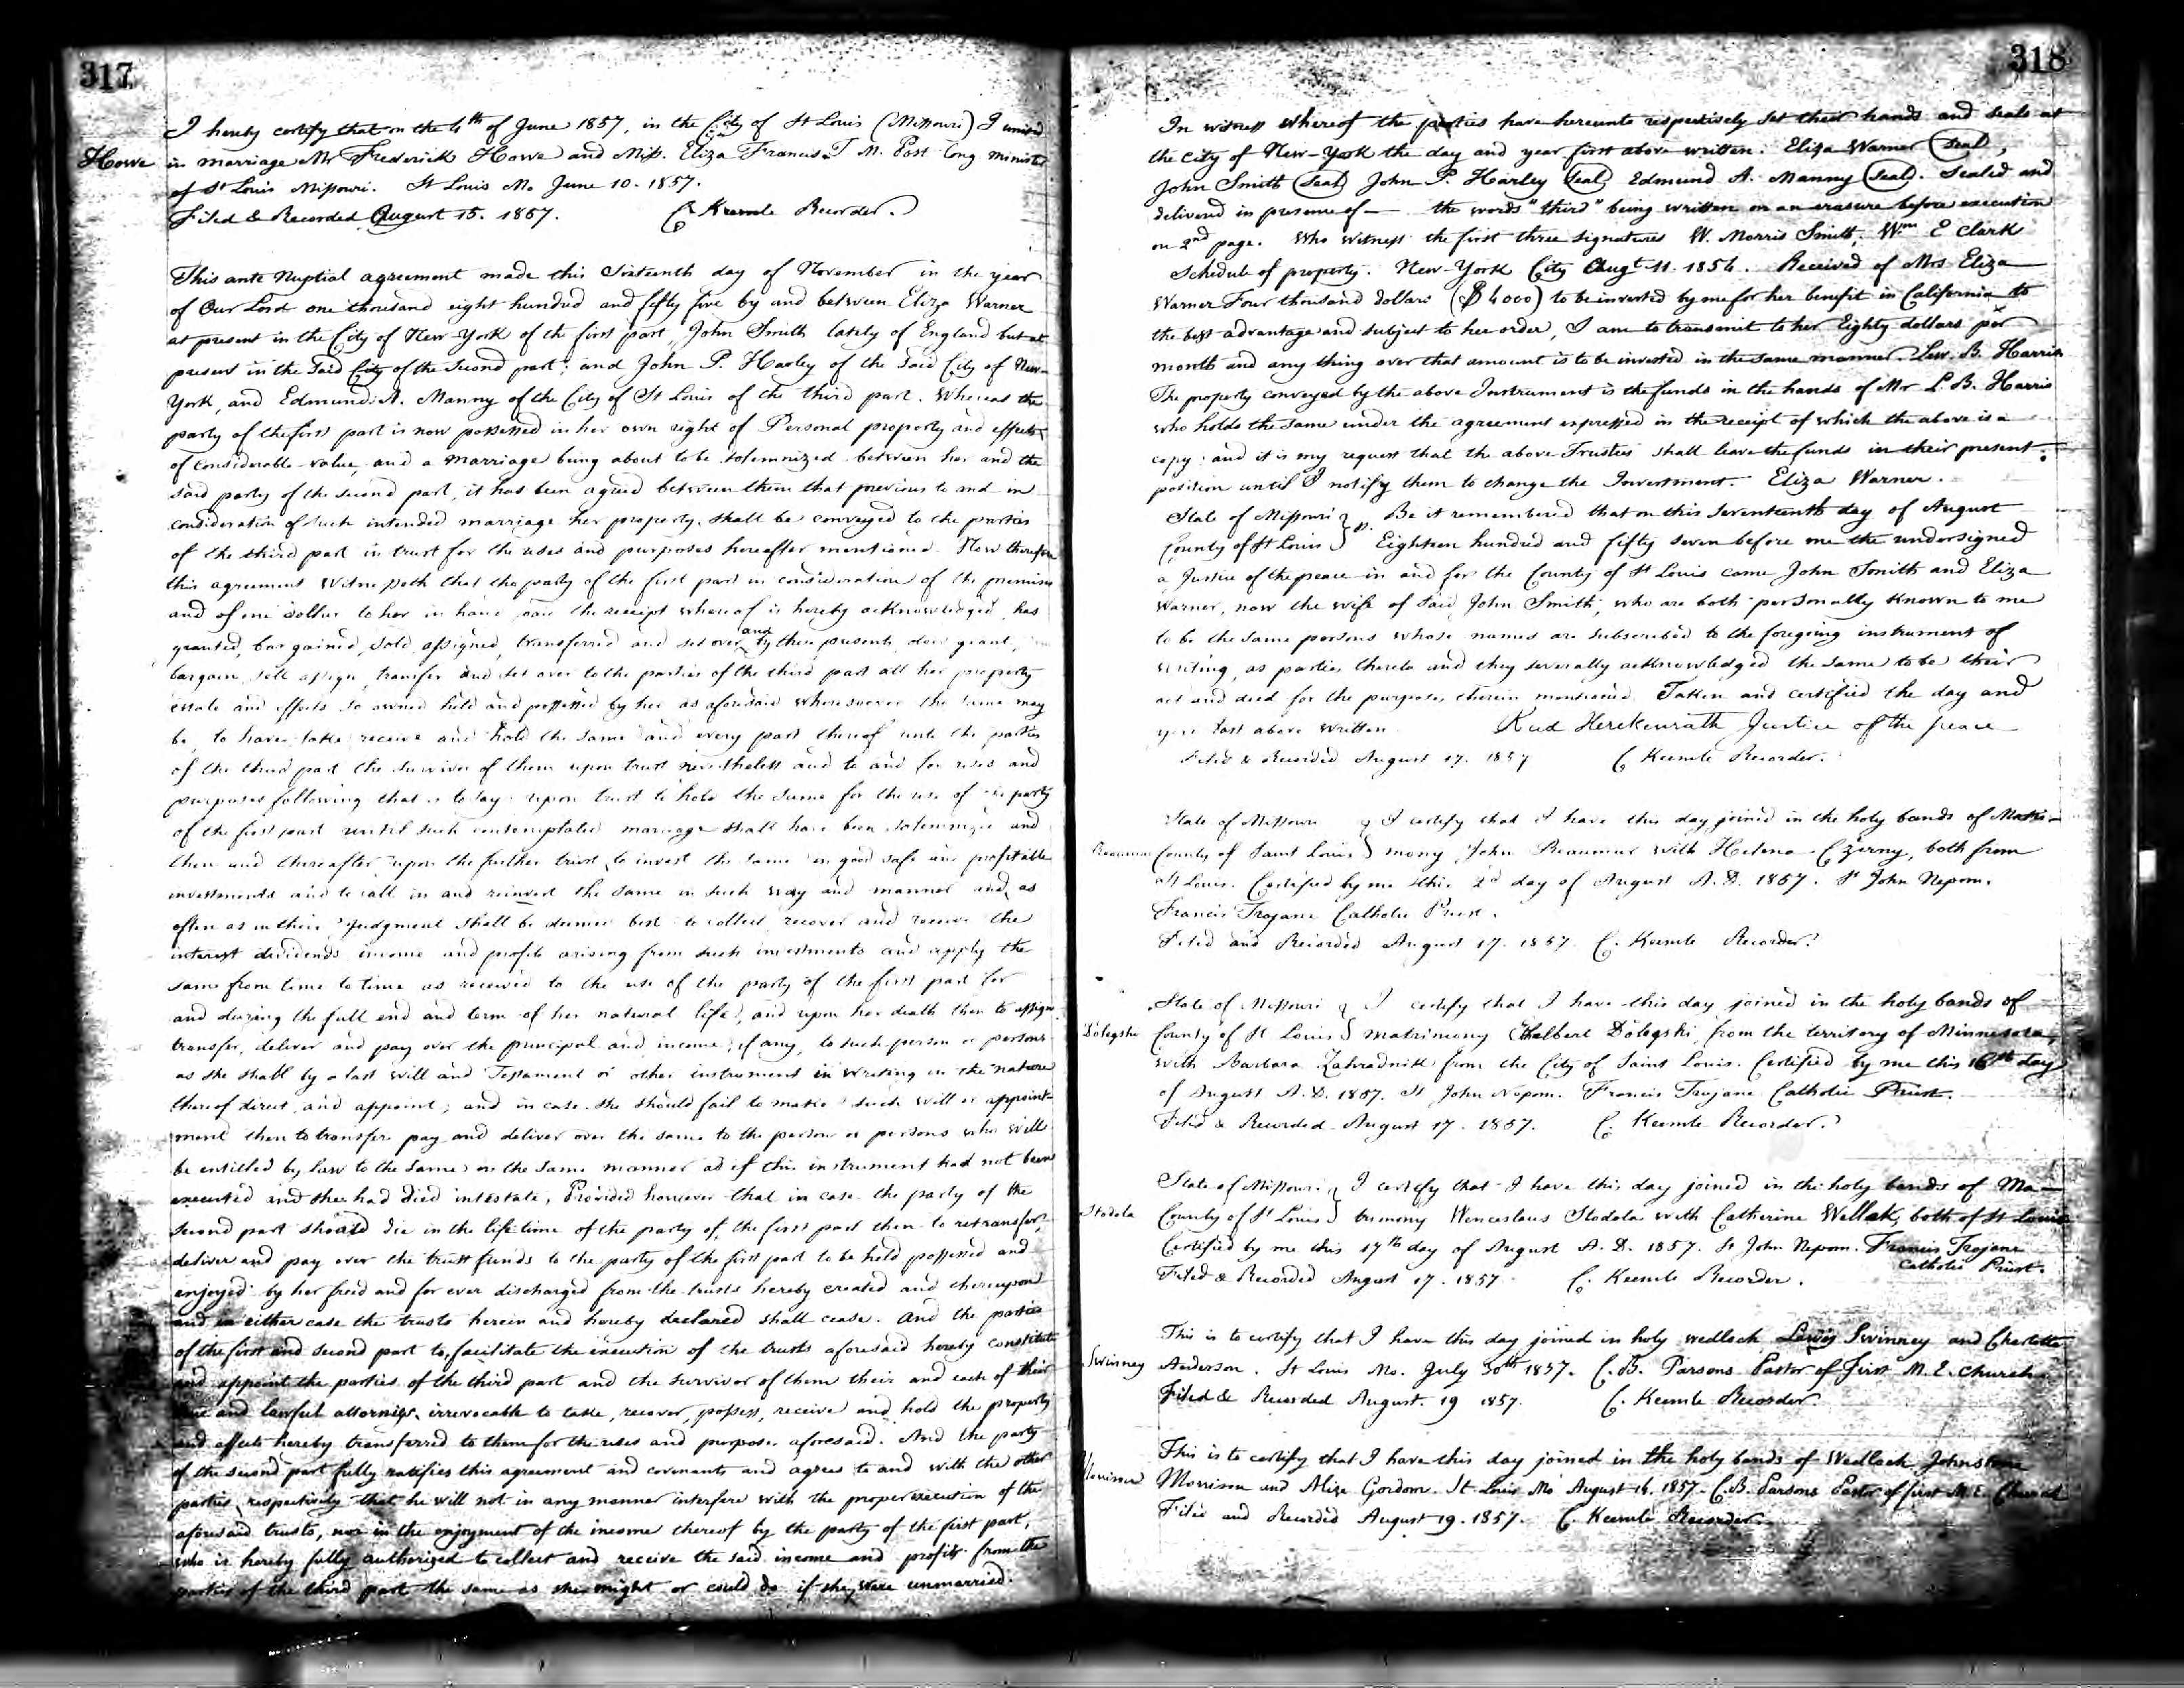 317
I hereby certify that on the 4th of June 1857, in the City of St Louis (Missouri) I united
Howe in marriage Mr Frederick Howe and Miss. Eliza Francis. T. M. Post Cong minister
of St Louis Missouri. St Louis Mo June 10. 1857.
Filed & Recorded August 15. 1857. C Keemle Recorder.
This ante Nuptial agreement made this Sixteenth day of November in the year
of Our Lord one thousand eight hundred and fifty five by and between Eliza Warner
at present in the City of New-York of the first part, John Smith lately of England but at
present in the Said City of the Second part; and John P. Harley of the Said City of New-
York, and Edmund A. Manny of the City of St Louis of the third part. Whereas the
party of the first part is now possessed in her own right of Personal property and effects
of considerable value, and a marriage being about to be solemnized between her and the
said party of the second part, it has been agreed between them that previous to and in
consideration of such intended marriage her property shall be conveyed to the parties
of the third part in trust for the uses and purposes hereafter mentioned. Now therefore
this agreement Witnesseth that the party of the first part in consideration of the premises
and of one dollar to her in hand paid the receipt whereof is hereby acknowledged, has
granted, bargained, sold, assigned, transferred and set over and by these presents does grant,
bargain, sell assign, transfer and set over to the parties of the third part all her property
estate and effects so owned held and possessed by her as aforesaid wheresoever the same may
be, to have take receive and hold the same and every part thereof unto the parties
of the third part the survivor of them upon trust nevertheless and to and for uses and
purposes following that is to say: upon trust to hold the same for the use of the party
of the first part until such contemplated marriage shall have been solemnized and
then and thereafter upon the further trust to invest the same in good safe and profitable
investments and to call in and reinvest the same in such way and manner and as
often as in their judgment shall be deemed best to collect, recover and receive the
interest dividends income and profits arising from such investments and apply the
same from time to time as received to the use of the party of the first part for
and during the full end and term of her natural life, and upon her death then to assign
transfer, deliver and pay over the principal and income, if any, to such person or persons
as she shall by a last Will and Testament or other instrument in writing in the nature
thereof direct and appoint; and in case she should fail to make such will or appoint-
ment then to transfer pay and deliver over the same to the person or persons who will
be entitled by law to the same in the same manner as if this instrument had not been
executed and she had died intestate, Provided however that in case the party of the
second part should die in the lifetime of the party of the first part then to retransfer,
deliver and pay over the trust funds to the party of the first part to be held possessed and
enjoyed by her freed and for ever discharged from the trusts hereby created and thereupon
and in either case the trusts herein and hereby declared shall cease. And the parties
of the first and second part to facilitate the execution of the trusts aforesaid hereby constitute
and appoint the parties of the third part and the survivor of them their and each of their
true and lawful attorneys irrevocable to take, recover, possess, receive and hold the property
and effects hereby transferred to them for the uses and purposes aforesaid. And the party
of the second part fully ratifies this agreement and covenants and agrees to and with the other
parties respectively that he will not in any manner interfere with the proper execution of the
aforesaid trusts, nor in the enjoyment of the income thereof by the party of the first part,
who is hereby fully authorized to collect and receive the said income and profits from the
parties of the third part the same as she might or could do if she were unmarried.
318
In witness whereof the parties have hereunto respectively set their hands and seals at
the City of New-York the day and year first above written. Eliza Warner (Seal),
John Smith (Seal) John P. Harley (Seal) Edmund A. Manny (Seal). Sealed and
delivered in presence of — the words "third" being written on an erasure before execution
on 2nd page. Who witness the first three signatures W. Morris Smith, Wm E Clark
Schedule of property. New-York City Augt 11. 1854. Received of Mrs Eliza
Warner Four thousand dollars ($4000) to be invested by me for her benefit in California to
the best advantage and subject to her order, I am to transmit to her Eighty dollars per
month and any thing over that amount is to be invested in the same manner. Lew. B. Harris
The property conveyed by the above Instrument is the funds in the hands of Mr L. B. Harris
who holds the same under the agreement expressed in the receipt of which the above is a
copy: and it is my request that the above Trustees shall leave the funds in their present
position until I notify them to change the Investment. Eliza Warner.
State of Missouri } ss. Be it remembered that on this Seventeenth day of August
County of St Louis } Eighteen hundred and fifty seven before me the undersigned
a Justice of the peace in and for the County of St Louis came John Smith and Eliza
Warner, now the wife of Said John Smith, who are both personally known to me
to be the same persons whose names are subscribed to the foregoing instrument of
writing, as parties thereto and they severally acknowledged the same to be their
act and deed for the purposes therein mentioned. Taken and certified the day and
year last above written Rud Herckenrath Justice of the peace
Filed & Recorded August 17. 1857 C Keemle Recorder.
State of Missouri } I certify that I have this day joined in the holy bands of Matri-
County of Saint Louis } mony John Beaumur with Helena Czerny, both from
St Louis. Certified by me this 2d day of August A.D. 1857. St John Nepom.
Francis Trojane Catholic Priest.
Filed and Recorded August 17. 1857. C. Keemle Recorder.
State of Missouri } I certify that I have this day joined in the holy bands of
Dolegshi County of St Louis } matrimony Adalbert Dolegshi from the territory of Minnesota,
with Barbara Zahradnik from the City of Saint Louis. Certified by me this 16th day
of August A.D. 1857. St John Nepom. Francis Trojane Catholic Priest.
Filed & Recorded August 17. 1857. C. Keemle Recorder.
State of Missouri } I certify that I have this day joined in the holy bands of Ma-
Stodola County of St Louis } trimony Wenceslaus Stodola with Catherine Wellak, both of St Louis
Certified by me this 17th day of August A.D. 1857. St John Nepom. Francis Trojane
Catholic Priest.
Filed & Recorded August 17. 1857 C. Keemle Recorder.
This is to certify that I have this day joined in holy wedlock Lewis Swinney and Charlotte
Swinney Anderson. St Louis Mo. July 30th 1857. C. B. Parsons Pastor of First M. E. Church
Filed & Recorded August. 19 1857. C. Keemle Recorder.
This is to certify that I have this day joined in the holy bands of Wedlock Johnstone
Morrison Morrison and Alize Gordon. St Louis Mo August 16. 1857. C. B. Parsons Pastor of first M. E. Church
Filed and Recorded August 19. 1857. C. Keemle Recorder.